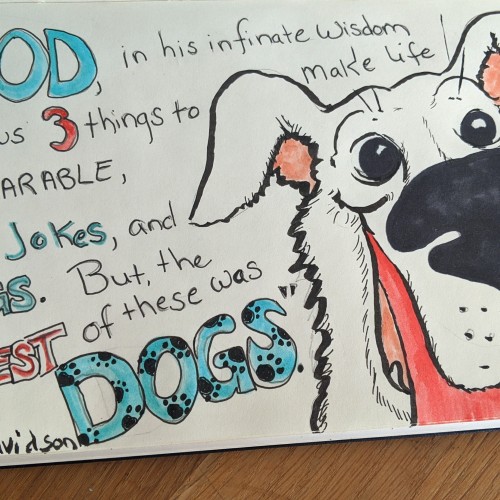 OD, in his infinate wisdom
us 3 things to make life
ARABLE,
Jokes, and
GS. But, the
EST of these was
DOGS."
vidson